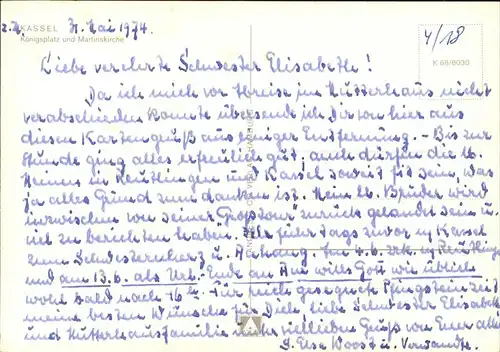 z.Zt. 31. Mai 1974.
KASSEL
Königsplatz und Martinskirche
4/18
K 68/8030
Liebe verehrte Schwester Elisabeth!
Da ich mich vor Abreise im Mutterhaus nicht
verabschieden konnte übersende ich Dir von hier aus
diesen Kartengruß aus einiger Entfernung. - Bis zur
Stunde ging alles erfreulich gut; auch dürfen die lb.
Meinen in Reutlingen und Kassel soweit fit sein, was
ja alles Grund zum danken ist. Mein lb. Bruder wird
inzwischen von seiner Großtour zurück gelandet sein u.
viel zu berichten haben. Wir hier tags zuvor in Kassel
zum Schwesternherz u. Anhang. Am 4.6. zrk. in Reutlingen
und am 13.6. als Url.-Ende an Aue wills Gott wie üblich
wohl bald nach 16 h. Für reich gesegnete Pfingsten seid
meine besten Wünsche für Dich, liebe Schwester Elisabeth
und Mutterhausfamilie mit vielen lieben Gruß von Euer aller
S. Else Woost u. Verwandte.